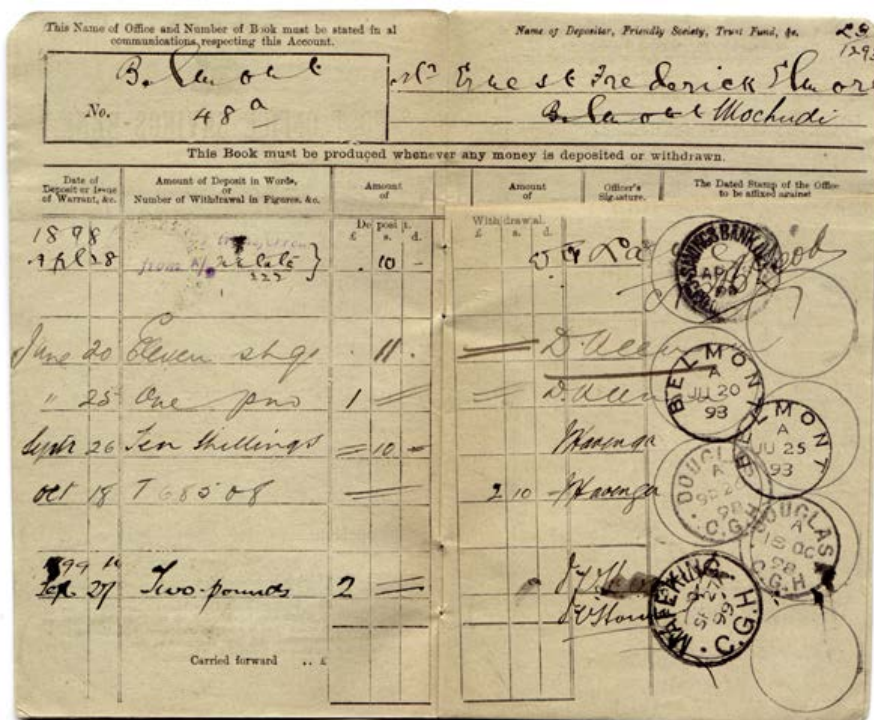 This Name of Office and Number of Book must be stated in al
communications, respecting this Account.
Belmont
No. 48a
Name of Depositor, Friendly Society, Trust Fund, &c.
Mr Ernest Frederick Elmore
Belmont Mochudi
This Book must be produced whenever any money is deposited or withdrawn.
Date of Deposit or Issue of Warrant, &c.
Amount of Deposit in Words, or Number of Withdrawal in Figures, &c.
Amount of Deposit.
£ s. d.
Amount of Withdrawal.
£ s. d.
Officer's Signature.
The Dated Stamp of the Office to be affixed against
1898
Apl 28 from 10
SAVINGS BANK
June 20 Eleven 11
BELMONT A JU 20 93
" 25 One 1
BELMONT A JU 25 93
Septr 26 Ten Shillings 10 Havenga
DOUGLAS A C.G.H
Oct 18 T 68508 2 10 Havenga
DOUGLAS A 18 OC 98 C.G.H
1899
Sep. 27 Two pounds 2
MAFEKING SP 27 99 C.G.H
Carried forward .. £